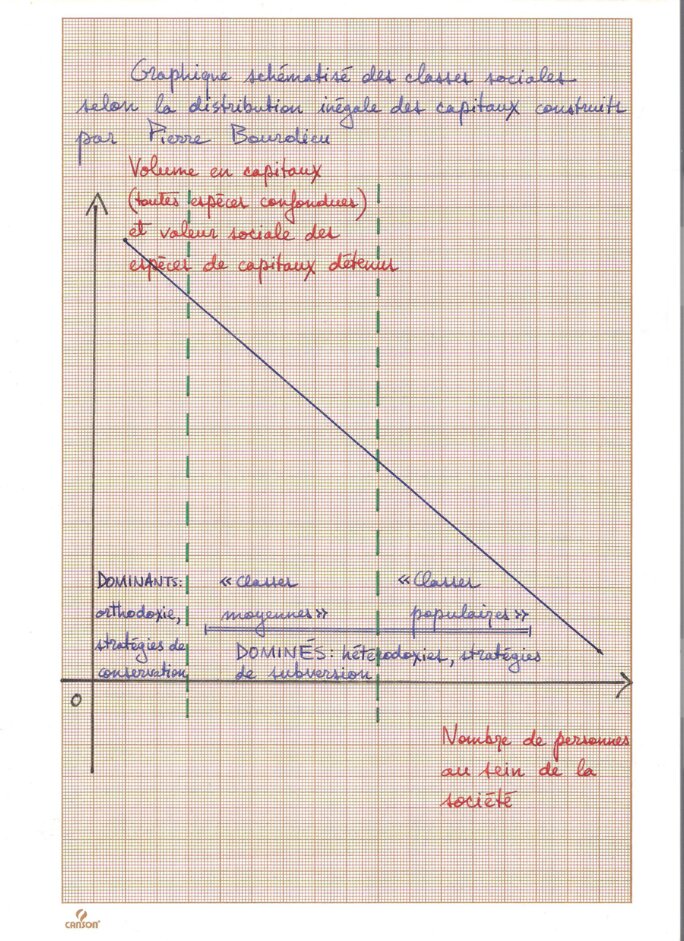 Graphique schématisé des classes sociales
selon la distribution inégale des capitaux construits
par Pierre Bourdieu
Volume en capitaux
(toutes espèces confondues)
et valeur sociale des
espèces de capitaux détenus
DOMINANTS:
orthodoxie,
stratégies de
conservation
« Classes
moyennes »
« Classes
populaires »
DOMINÉS: hétérodoxies, stratégies
de subversion
0
Nombre de personnes
au sein de la
société
CANSON